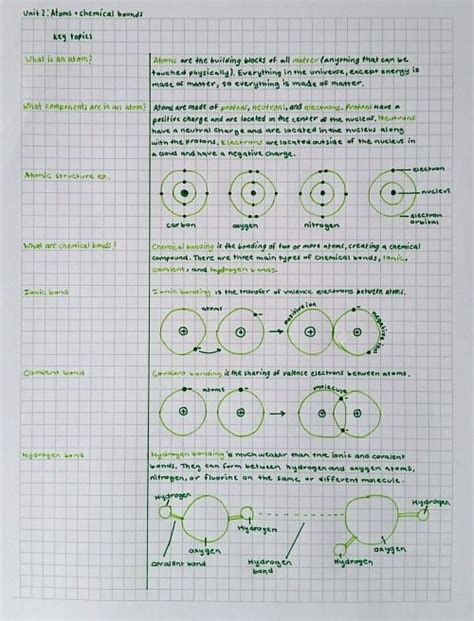 Unit 2: Atoms + chemical bounds
key topics
What is an atom?
Atoms are the building blocks of all matter (anything that can be
touched physically). Everything in the universe, except energy is
made of matter, so everything is made of matter.
What components are in an atom?
Atoms are made of protons, neutrons, and electrons. Protons have a
positive charge and are located in the center of the nucleus. Neutrons
have a neutral charge and are located in the nucleus along
with the protons. Electrons are located outside of the nucleus in
a cloud and have a negative charge.
Atomic structure ex.
carbon
oxygen
nitrogen
electron
nucleus
electron
orbital
What are chemical bonds?
Chemical bonding is the bonding of two or more atoms, creating a chemical
compound. There are three main types of chemical bonds, ionic,
covalent, and hydrogen bonds.
Ionic bond
Ionic bonding is the transfer of valence electrons between atoms.
atoms
positive ion
negative ion
Covalent bond
Covalent bonding is the sharing of valence electrons between atoms.
atoms
molecule
Hydrogen bond
Hydrogen bonding is much weaker than the ionic and covalent
bonds. They can form between hydrogen and oxygen atoms,
nitrogen, or fluorine on the same or different molecule.
Hydrogen
Hydrogen
Hydrogen
oxygen
covalent bond
Hydrogen
bond
oxygen
Hydrogen